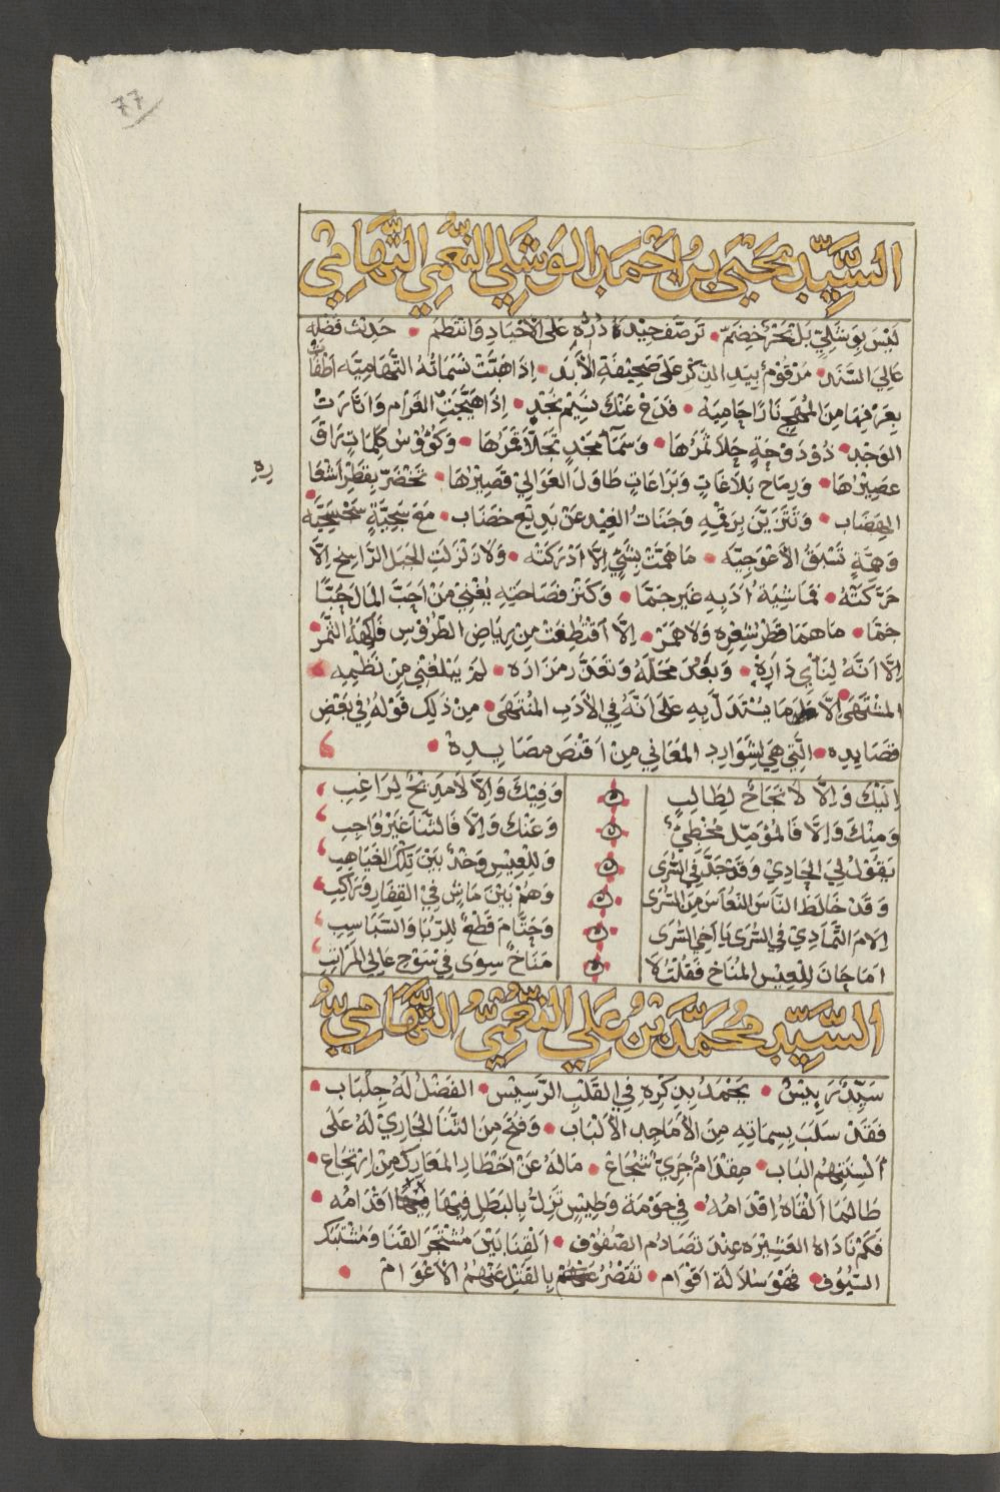 77
السَّيِّد يَحْيَى بنُ اَحْمَد الوَشَلِي النَّعْمِي التَّهَامِي
لَيْسَ بِوَشَلِيٍّ بَلْ بَحْرُ خِضَمّ • تَرصَّف جِيْدهُ دُرُّه عَلى الأجْيَادِ وَانْتَظمْ • حَدِيْث فَضْلِهِ
عَالِيَ السَّنَد • مَرْقُومٌ بِيَدِ الذِّكْر عَلَى صَحِيْفَةِ الأَبَد • اِذَا هَبَّتْ نَسَمَاتُهُ التِّهَامِيَّه اَطْفَاَتْ
بِعَرْفِهَا مِنَ المُهَجِ نَارًا حَامِيَه • فَدَعْ عَنْكَ نَسِيْم نَجْد • اِذَا هَيَّجَتْ الغَرَام وَاَثَارَتْ
الوَجْد • ذُوْ دَوْحَةٍ حَلاَ ثَمَرُهَا • وَسَمَآءِ مَجْدٍ تَجَلاَّ قَمَرُهَا • وَكُوُوْس كَلِمَاتٍ رَاقَ
عَصِيْرُهَا • وَرِمَاح بَلاَغَاتٍ وَبَرَاعَاتٍ طَاوَل العَوَالِيَ قَصِيْرُهَا • تَخْضَرّ بِقَطْرِ اَشْعَارِهِ
الهِضَاب • وَتَتَزَيّن بِرَقْمِهِ وَجَنَاتُ الغِيْد عَنْ بَدِيْع خضَاب • مَعَ سَجِيَّةٍ سَحْسَحِيَّه
وَهِمَّةٍ تَسْبَقُ الأَعْوَجِيَّه • مَا هَمَّتْ بِشَيْءٍ اِلاَّ اَدْرَكَتْه • وَلاَ دَنْزَلَتِ الجَبَل الرَّاسِخ اِلاَّ
حَرَّكَتْهُ • فَمَاشِيَةُ اَدَبِهِ غَيْر جَمَّا • وَكَنْز فَصَاحَتِهِ يُغْنِيْ مَنْ اَحَبَّ المَال حُبًّا
جَمَّا • مَا هَمَا قَطْر شِعْرِهِ وَلاَ هَمَرْ • اِلاَّ اَقْتُطِفَتْ مِنْ رِيَاضِ الطُّرُوْسِ فَاكِهَةُ الثَّمَرْ
اِلاَّ اَنَّهُ لِنَأْيِ دَارِهْ • وَبُعْد مَحَلِّهُ وَتَعَذّر مَزَارَه • لَمْ يَبْلغْنِي مِن نَظْمِهِ
المُشْتَهَى اِلاَّ مَا يُسْتَدَلّ بِهِ عَلَى اَنَّهُ فِي الأَدَبِ المُنْتَهَى • مِنْ ذَلِكَ قَوْلُهُ فِي بَعْض
قَصَايِدِه • الَّتِي هِيَ لِشَوَارِد المَعَانِي مِنْ اَقْنَصِ مصَايِدِهْ •
اِلَيْكَ وَاِلاَّ لاَ نَجَاحٌ لِطَالِبِ وَفِيْكَ وَاِلاَّ لاَ مَدِيْحٌ لِرَاغِبِ
وَمِنْكَ وَاِلاَّ فَالمُؤَمِّل مُخْطِئٌ وَعَنْكَ وَاِلاَّ فَالثَّنَا غَيْرُ وَاجِبِ
يَقُوْلُ لِيَ الحَادِيْ وَقَدْ جَدَّ فِي السُّرَى وَلِلْعِيْسِ وَخْدٌ بَيْنَ تِلْكَ الغَيَاهِبِ
وَقَدْ خَالطَ النَّاسَ النّعَاسُ مِنَ السُّرَى وَهُمْ بَيْنَ مَاشٍ فِيْ القِفَارِ وَرَاكِبِ
اِلاَمَ التَّمَادِيْ فِي السُّرَى يَا اَخِي السُّرَى وَحَتَّامَ قَطْعٌ لِلرُّبَا وَالسَّبَاسِبِ
اَمَا حَانَ لِلْعِيْسِ المُنَاخ فَقُلْتُ لاَ مَنَاخٌ سِوَى فِيْ سُوْحِ عَالِي المَرَاتِبِ
السَّيِّد مُحَمَّد بنُ عَلِي النَّعْمِيُّ التَّهَامِيُّ
سَيِّدٌ رَئِيْسٌ • يَحْمَدُ بِذِكْرِهِ فِي القَلْبِ الرَّسِيْس • الفَضْلُ لَهُ جِلْبَاب •
فَقَدْ سَلَبَ بِسِمَاتِهِ مِنَ الأَمَاجِد الأَلْبَاب • وَفُتحَ مِنَ الثَّنَا الجَارِيْ لَهُ عَلَى
اَلْسِنَتِهُم البَاب • مِقْدَامٌ جَرِيٌ شُجَاع • مَا لَهُ عَنْ اَخْطَارِ المَعَارِكِ مِنْ اِرْتِجَاع •
طَالَمَا اَلْقَاهُ اِقْدَامُهُ • فِي حَوْمَة وَطِيْسٍ تَزِلُّ بِالبَطَل فِيْهَا اَقْدَامُه •
فَكَمْ نَادَاهُ العَشِيْرَه عِنْدَ تَصَادُم الصُّفُوْف • اَلْقِنَا بَيْنَ مُشْتَجَر القَنَا وَمُشْتَبَك
السُّيُوْف • فَهْوَ سُلاَلَة اَقْوَام • تَقْصُرُ بِالقَتْلِ عَنْهُمُ الأَعْوَامْ •